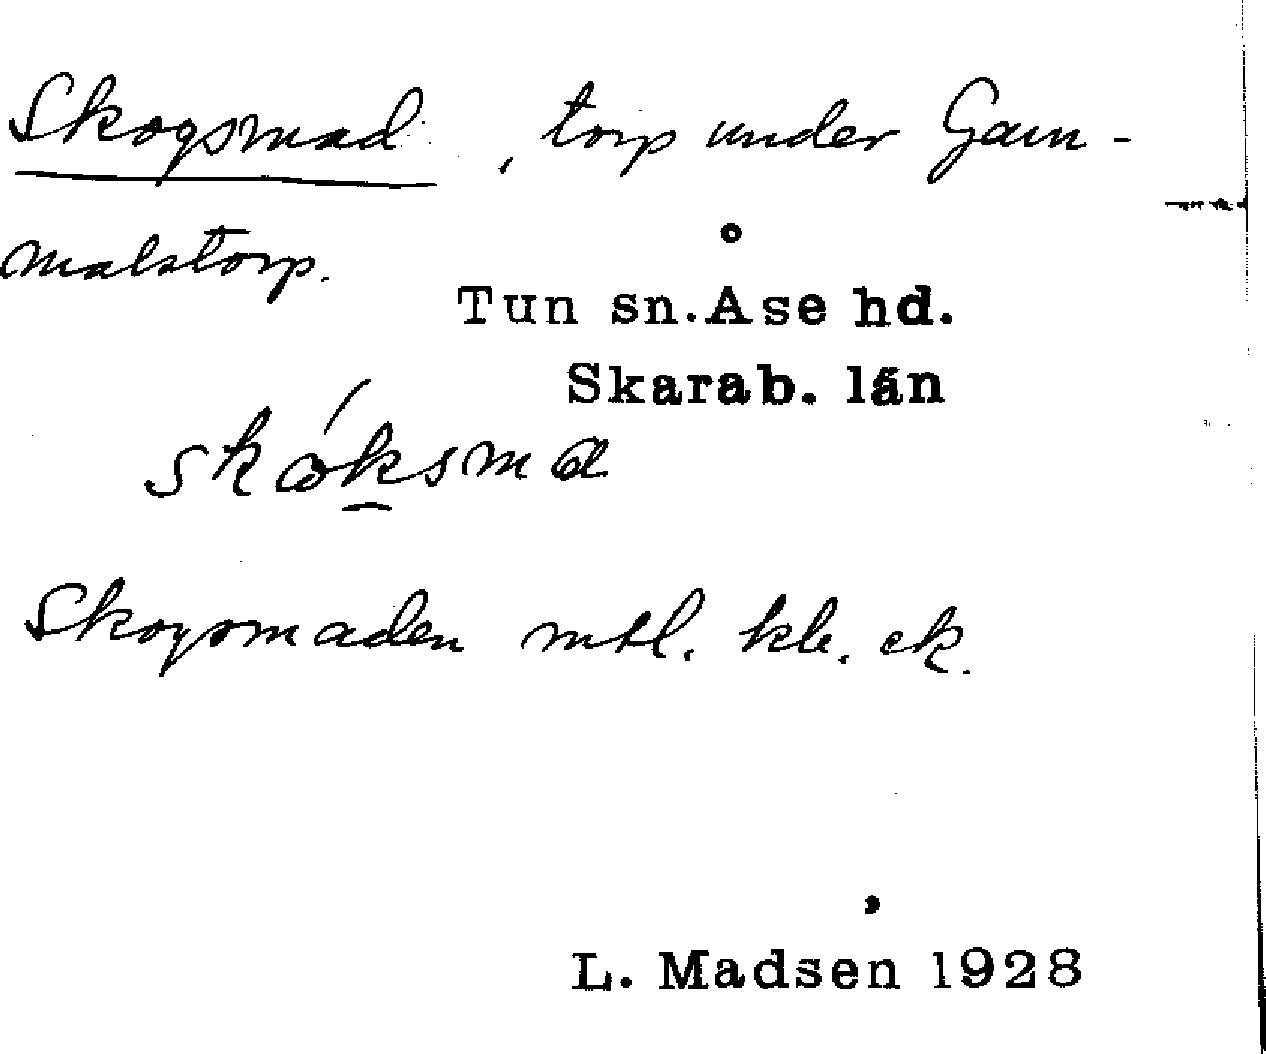 Skogsmad, torp under Gam-
malstorp.
Tun sn. Åse hd.
Skarab. län
skóksma
Skogsmaden mtl. kb. ek.
L. Madsen 1928